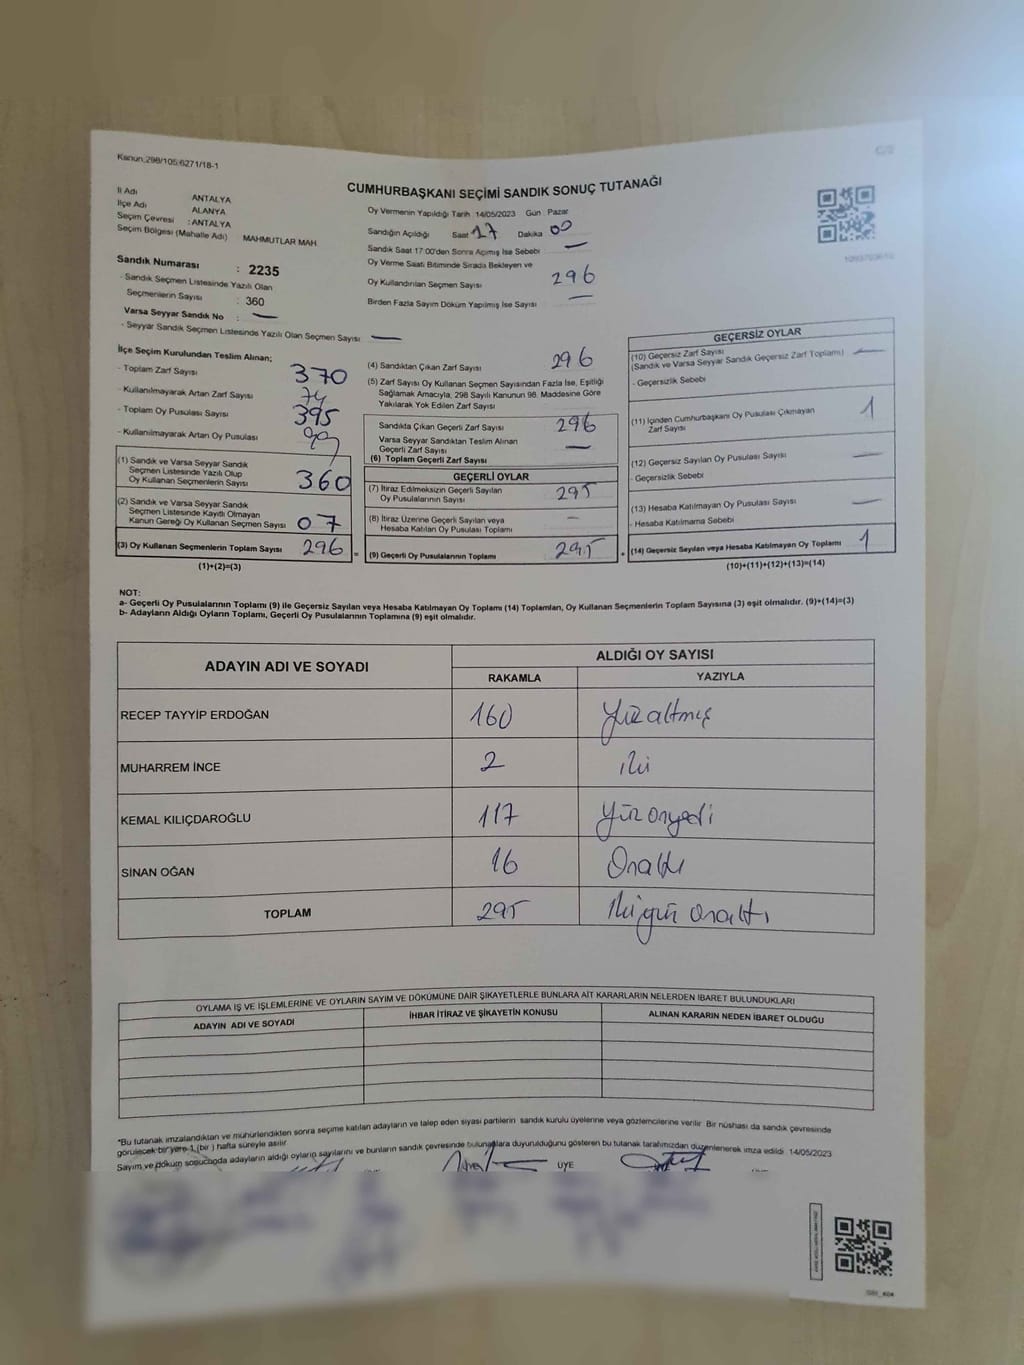 Kanun:298/105;6271/18-1
CUMHURBAŞKANI SEÇİMİ SANDIK SONUÇ TUTANAĞI
İl Adı ANTALYA
İlçe Adı ALANYA
Seçim Çevresi : ANTALYA
Seçim Bölgesi (Mahalle Adı) MAHMUTLAR MAH
Sandık Numarası : 2235
- Sandık Seçmen Listesinde Yazılı Olan
Seçmenlerin Sayısı : 360
Varsa Seyyar Sandık No : —
- Seyyar Sandık Seçmen Listesinde Yazılı Olan Seçmen Sayısı —
Oy Vermenin Yapıldığı Tarih 14/05/2023 Gün Pazar
Sandığın Açıldığı Saat 17 Dakika 00
Sandık Saat 17:00'den Sonra Açımış İse Sebebi —
Oy Verme Saati Bitiminde Sırada Bekleyen ve
Oy Kullandırılan Seçmen Sayısı 296
Birden Fazla Sayım Döküm Yapılmış İse Sayısı —
İlçe Seçim Kurulundan Teslim Alınan;
- Toplam Zarf Sayısı 370
- Kullanılmayarak Artan Zarf Sayısı 74
- Toplam Oy Pusulası Sayısı 395
- Kullanılmayarak Artan Oy Pusulası 99
(1) Sandık ve Varsa Seyyar Sandık
Seçmen Listesinde Yazılı Olup
Oy Kullanan Seçmenlerin Sayısı 360
(2) Sandık ve Varsa Seyyar Sandık
Seçmen Listesinde Kayıtlı Olmayan
Kanun Gereği Oy Kullanan Seçmen Sayısı 07
(3) Oy Kullanan Seçmenlerin Toplam Sayısı 296
(1)+(2)=(3)
(4) Sandıktan Çıkan Zarf Sayısı 296
(5) Zarf Sayısı Oy Kullanan Seçmen Sayısından Fazla İse, Eşitliği
Sağlamak Amacıyla, 298 Sayılı Kanunun 98. Maddesine Göre
Yakılarak Yok Edilen Zarf Sayısı
Sandıkta Çıkan Geçerli Zarf Sayısı 296
Varsa Seyyar Sandıktan Teslim Alınan
Geçerli Zarf Sayısı —
(6) Toplam Geçerli Zarf Sayısı
GEÇERLİ OYLAR
(7) İtiraz Edilmeksizin Geçerli Sayılan
Oy Pusulalarının Sayısı 295
(8) İtiraz Üzerine Geçerli Sayılan veya
Hesaba Katılan Oy Pusulası Toplamı —
= (9) Geçerli Oy Pusulalarının Toplamı 295
GEÇERSİZ OYLAR
(10) Geçersiz Zarf Sayısı
(Sandık ve Varsa Seyyar Sandık Geçersiz Zarf Toplamı) —
- Geçersizlik Sebebi
(11) İçinden Cumhurbaşkanı Oy Pusulası Çıkmayan
Zarf Sayısı 1
(12) Geçersiz Sayılan Oy Pusulası Sayısı —
- Geçersizlik Sebebi
(13) Hesaba Katılmayan Oy Pusulası Sayısı —
- Hesaba Katılmama Sebebi
+ (14) Geçersiz Sayılan veya Hesaba Katılmayan Oy Toplamı 1
(10)+(11)+(12)+(13)=(14)
NOT:
a- Geçerli Oy Pusulalarının Toplamı (9) ile Geçersiz Sayılan veya Hesaba Katılmayan Oy Toplamı (14) Toplamları, Oy Kullanan Seçmenlerin Toplam Sayısına (3) eşit olmalıdır. (9)+(14)=(3)
b- Adayların Aldığı Oyların Toplamı, Geçerli Oy Pusulalarının Toplamına (9) eşit olmalıdır.
ADAYIN ADI VE SOYADI ALDIĞI OY SAYISI
RAKAMLA YAZIYLA
RECEP TAYYİP ERDOĞAN 160 Yüzaltmış
MUHARREM İNCE 2 iki
KEMAL KILIÇDAROĞLU 117 Yüzonyedi
SİNAN OĞAN 16 Onaltı
TOPLAM 295 onaltı
OYLAMA İŞ VE İŞLEMLERİNE VE OYLARIN SAYIM VE DÖKÜMÜNE DAİR ŞİKAYETLERLE BUNLARA AİT KARARLARIN NELERDEN İBARET BULUNDUKLARI
ADAYIN ADI VE SOYADI İHBAR İTİRAZ VE ŞİKAYETİN KONUSU ALINAN KARARIN NEDEN İBARET OLDUĞU
*Bu tutanak imzalandıktan ve mühürlendikten sonra seçime katılan adayların ve talep eden siyasi partilerin sandık kurulu üyelerine veya gözlemcilerine verilir. Bir nüshası da sandık çevresinde
görülecek bir yere 1 (bir ) hafta süreyle asılır.
Sayım ve döküm sonucunda adayların aldığı oyların sayılarını ve bunların sandık çevresinde bulunanlara duyurulduğunu gösteren bu tutanak tarafımızdan düzenlenerek imza edildi 14/05/2023
ÜYE